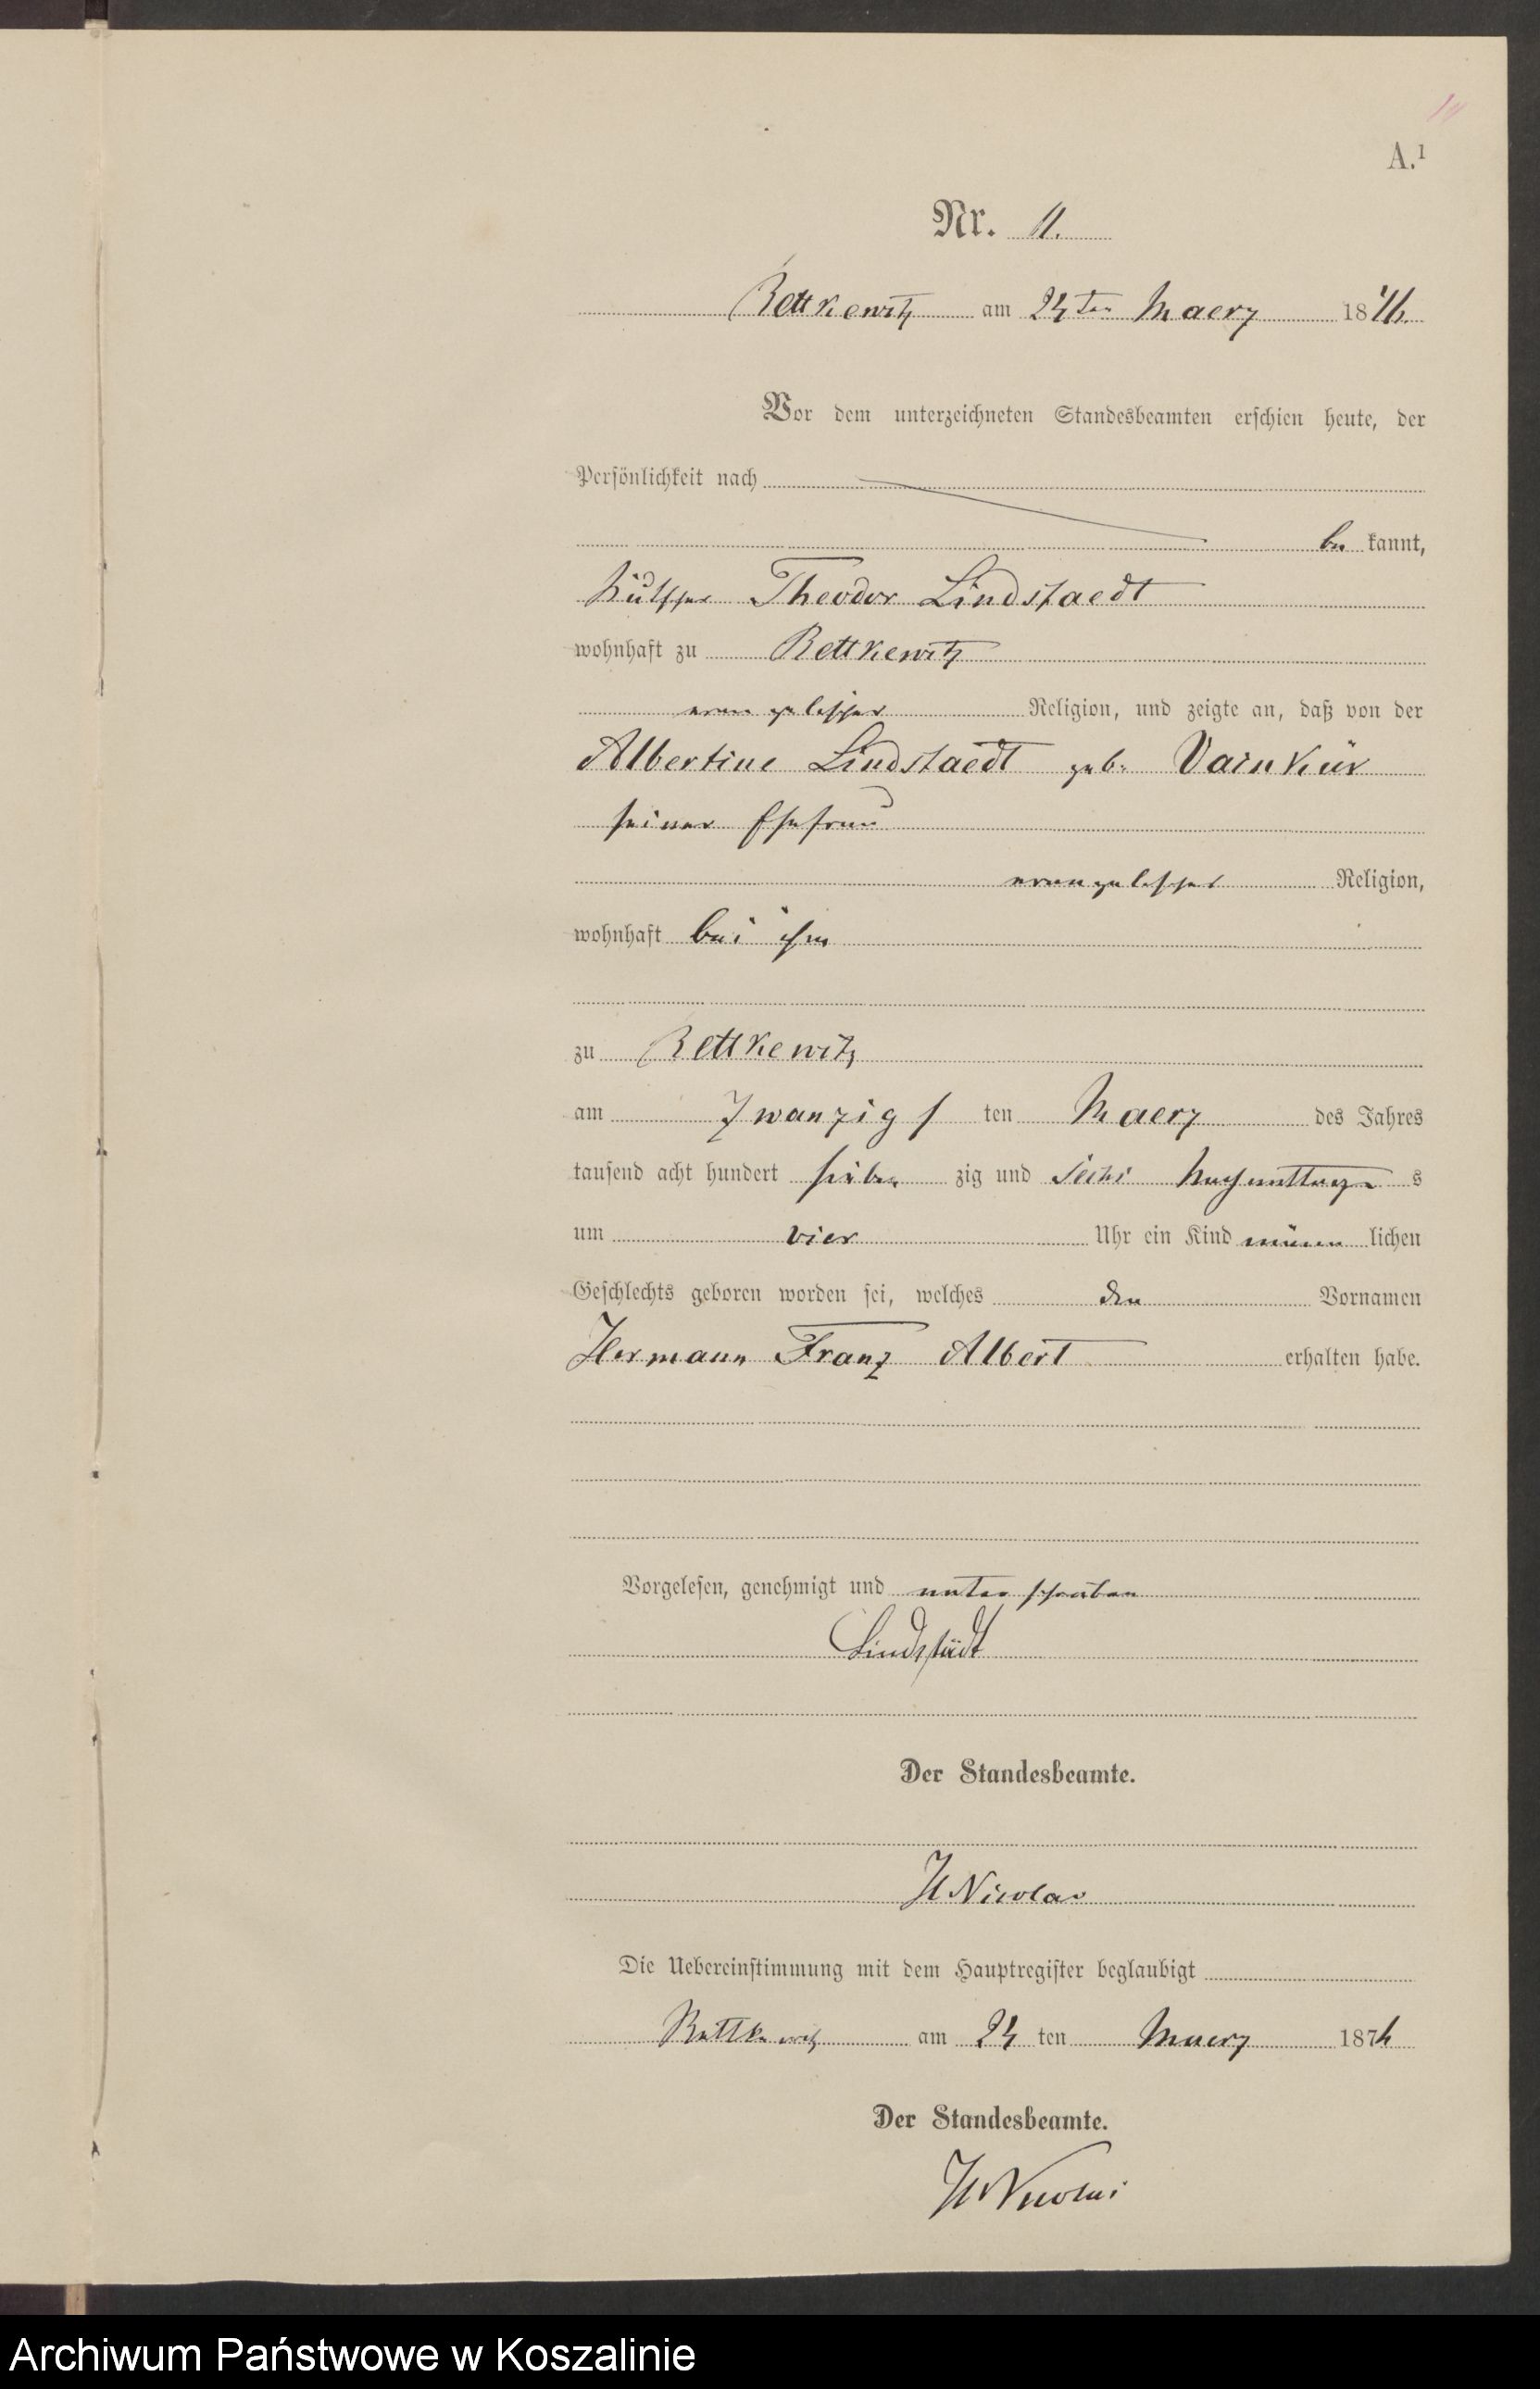 A.¹
Nr. 11.
Rettkewitz am 24ten Maerz 1876.
Vor dem unterzeichneten Standesbeamten erschien heute, der
Persönlichkeit nach
be kannt,
Theodor Lindstaedt
wohnhaft zu Rettkewitz
evangelischer Religion, und zeigte an, daß von der
Albertine Lindstaedt geb. Vainkür
seiner Ehefrau
evangelischer Religion,
wohnhaft bei ihm
zu Rettkewitz
am Zwanzigs ten Maerz des Jahres
tausend acht hundert sieben zig und sechs Nachmittags s
um vier Uhr ein Kind männ lichen
Geschlechts geboren worden sei, welches den Vornamen
Hermann Franz Albert erhalten habe.
Vorgelesen, genehmigt und unterschrieben
Lindstädt
Der Standesbeamte.
H Nicolai
Die Uebereinstimmung mit dem Hauptregister beglaubigt
Rettkewitz am 24 ten Maerz 1876
Der Standesbeamte.
H Nicolai
Archiwum Państwowe w Koszalinie